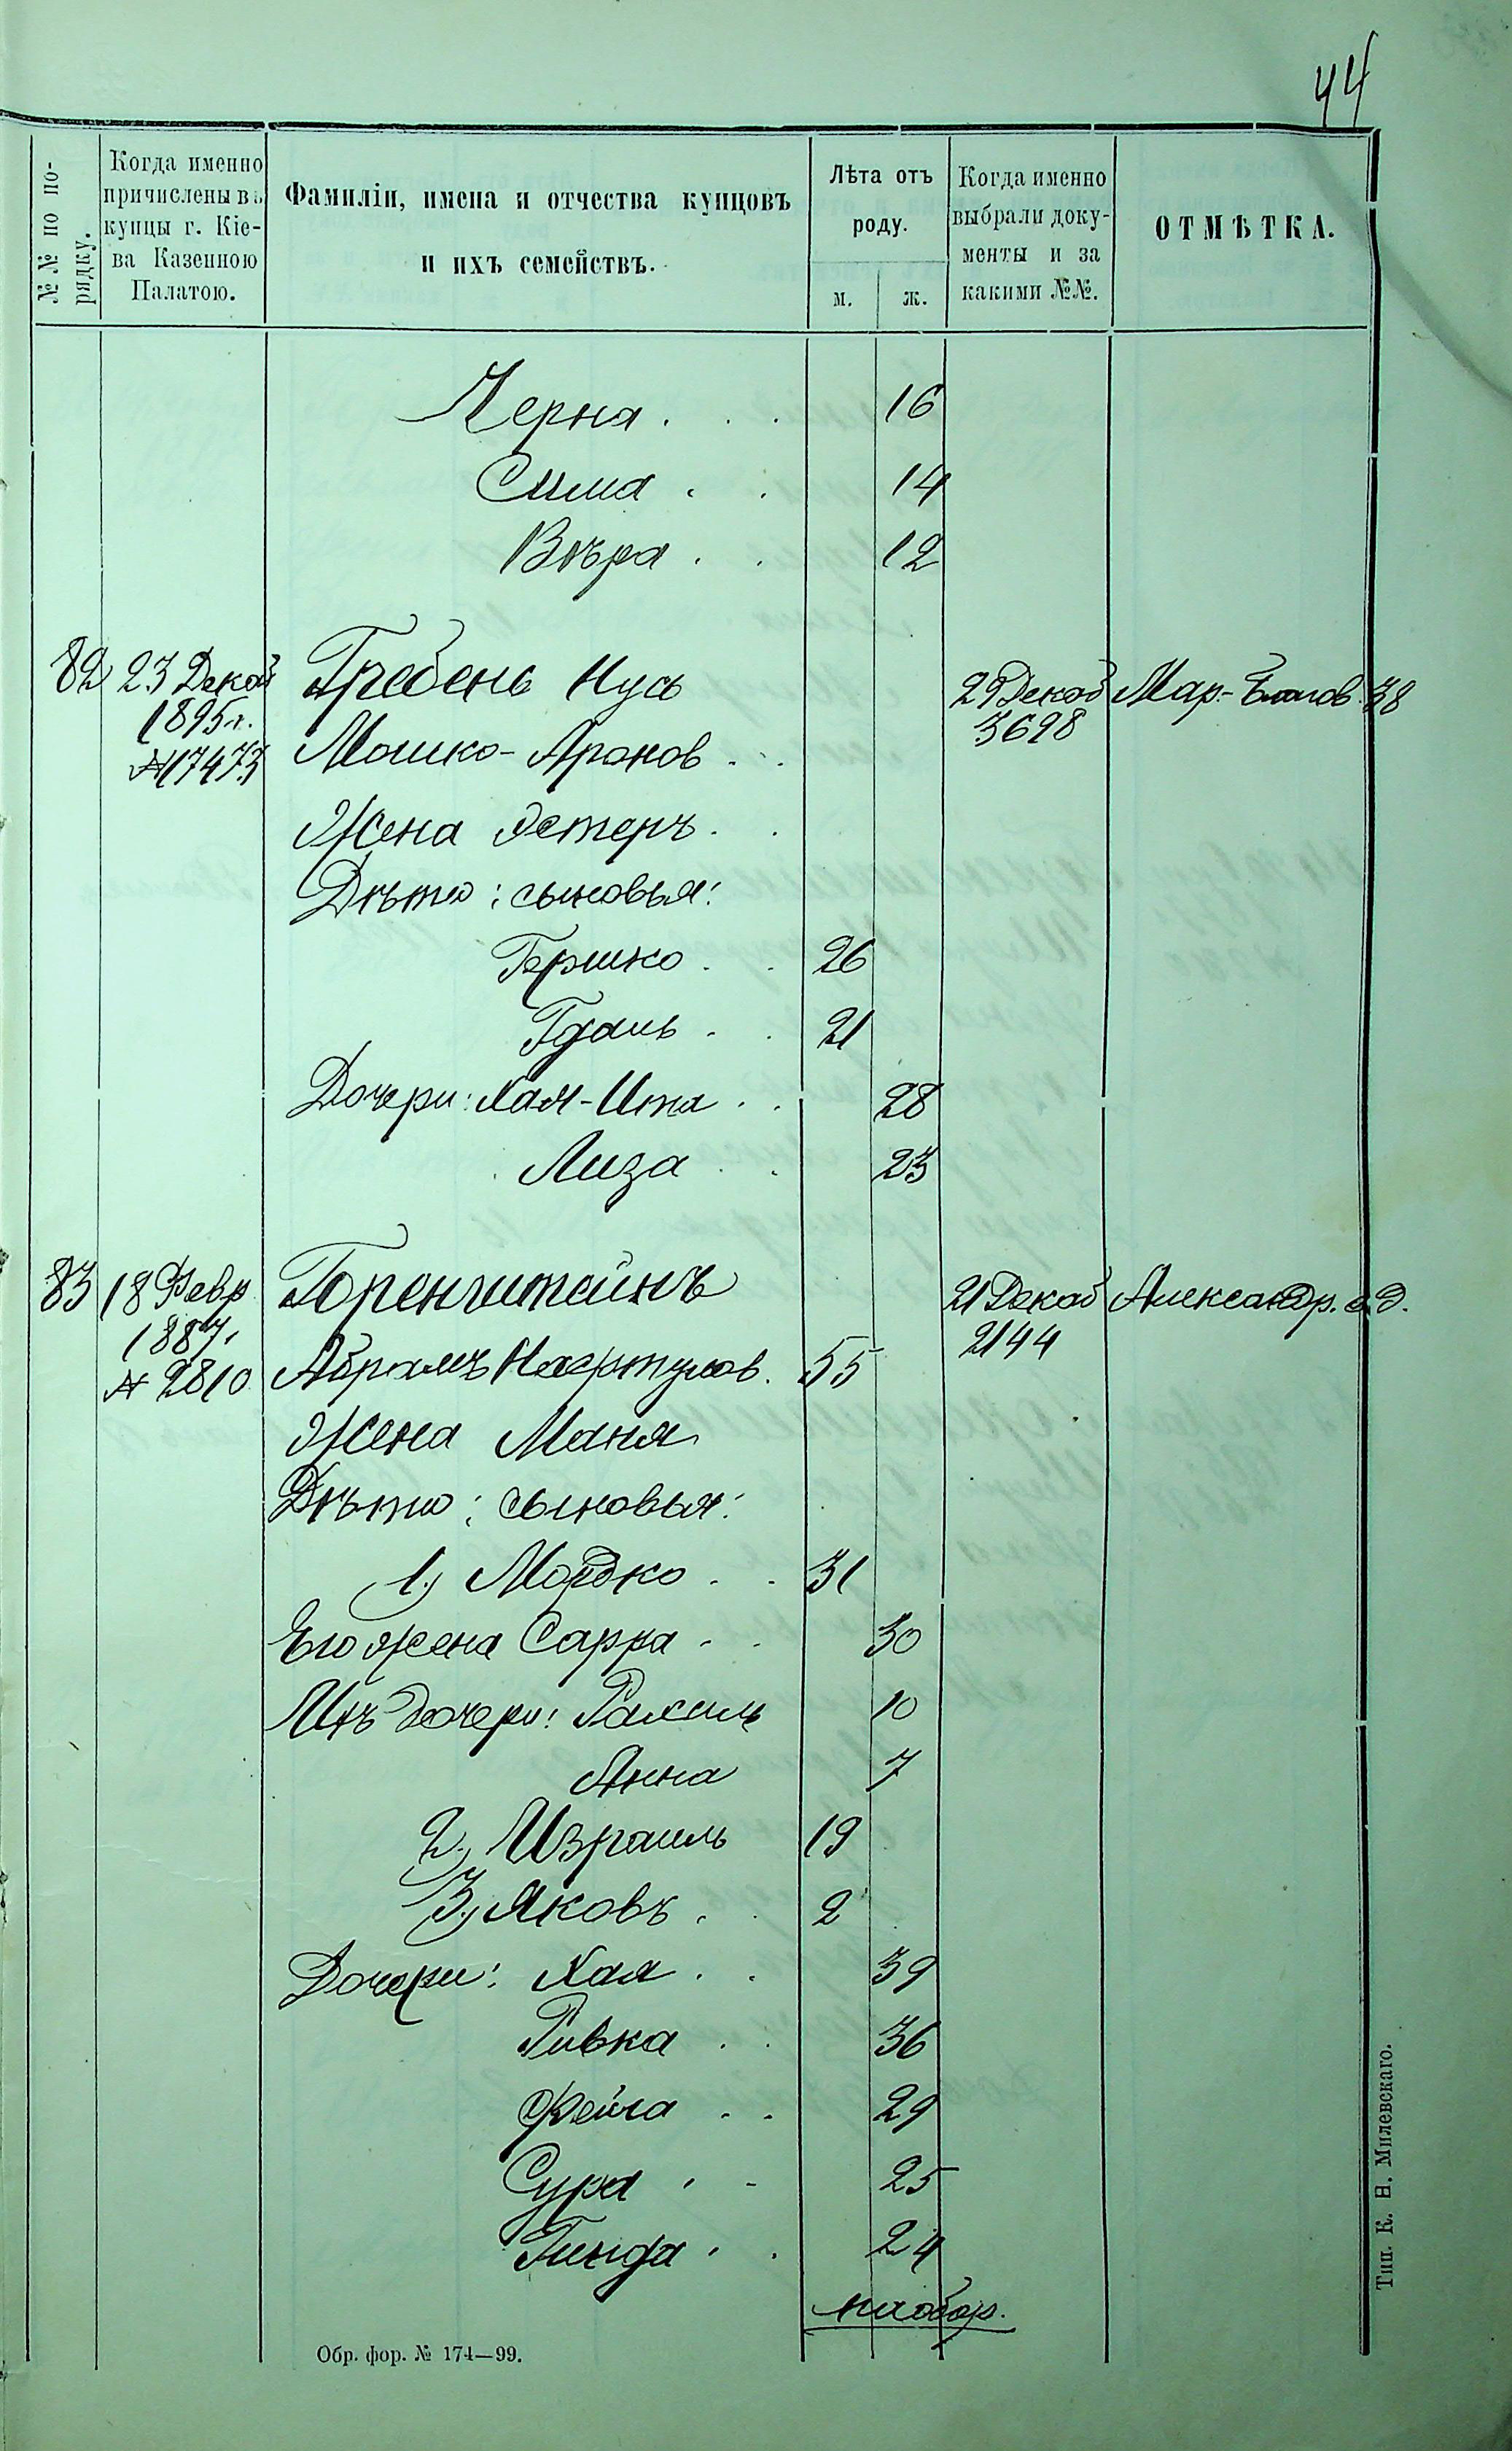 44
№№ по по-
рядку.
Когда именно
причислены въ
купцы г. Кіе-
ва Казенною
Палатою.
Фамиліи, имена и отчества купцовъ
и ихъ семействъ.
Лѣта отъ
роду.
м.
ж.
Когда именно
выбрали доку-
менты и за
какими №№.
ОТМѢТКА.
Черна . . . 16
Сима . . 14
Вѣра . . 12
82 23 Декаб Гребень Нусь 29 Декаб Мар.- 38
1895 г. 3698
№ 17473 Мошко-Аронов . .
Жена Эстеръ . .
Дѣти: сыновья:
Гершко . . 26
Гдаль . . 21
Дочери: Хая-Ита . . 28
Лиза . . 23
83 18 Февр Боренштейнъ 21 Декаб Александр.
1887, 2144
№ 2810 Абрамъ . 55
Жена Маня
Дѣти: сыновья:
1.) Мордко . . 31
Его жена Сарра . . 30
Ихъ дочери: Рахиль 10
Анна 7
2.) Израиль 19
3.) Яковъ . . 2
Дочери: Хая . . 39
Ривка . . 36
Фейга . . 29
Сура . . 25
Гинда . . 24
на обор.
Обр. фор. № 174—99.
Тип. К. Н. Милевскаго.